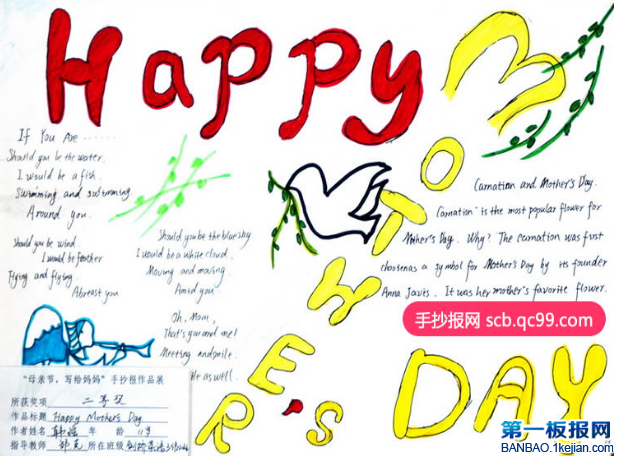 Happy
MOTHER'S
DAY
If You Are ......
Should you be the water.
I would be a fish.
Swimming and swimming
Around you.
Should you be wind
I would be feather
Flying and flying.
Abreast you
Should you be the blue sky
I would be a white cloud.
Moving and moving.
Amid you
Oh, Mom,
That's you and me!
Meeting and
as well.
Carnation and Mother's Day.
"Carnation" is the most popular flower for
Mother's Day. Why? The carnation was first
chosen as a symbol for Mother's Day by its founder
Anna Jarvis. It was her mother's favorite flower.
手抄报网 scb.qc99.com
“母亲节,写给妈妈”手抄报作品展
所获奖项 二等奖
作品标题 Happy Mothers Day
作者姓名 韩 年 龄
指导教师 所在班级
第一板报网
BANBAO.1kejian.com